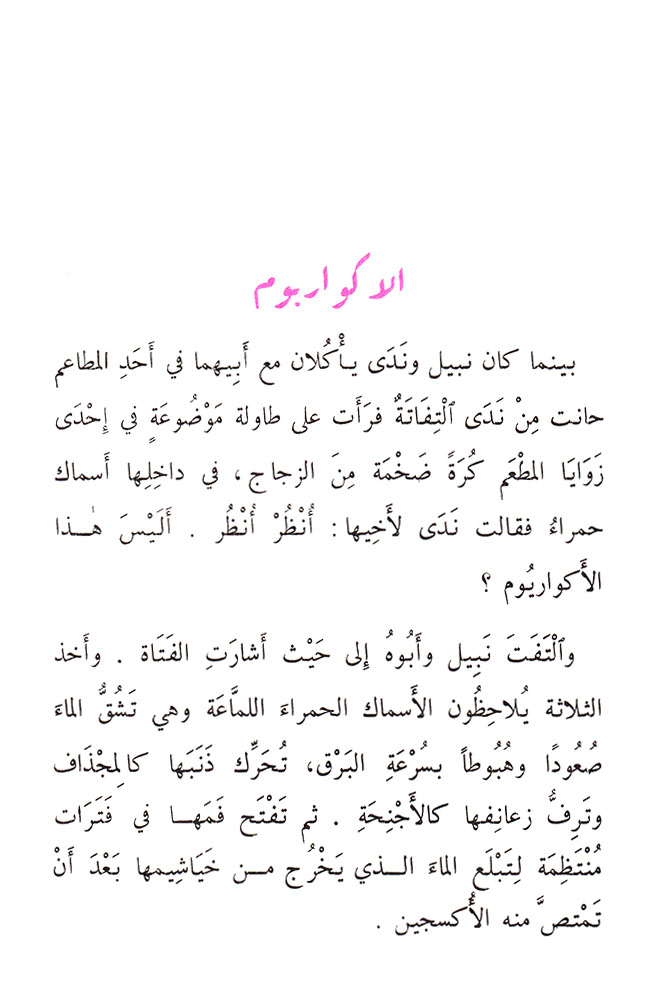 الاكواريوم
بينما كان نبيل ونَدَى يأْكُلان مع أَبِيهما في أَحَدِ المطاعم
حانت مِنْ نَدَى ٱلْتِفَاتَةٌ فرَأَت على طاولة مَوْضُوعَةٍ في إِحْدَى
زَوَايَا المطْعَم كُرَةً ضَخْمَة مِنَ الزجاج ، في داخِلِها أَسماك
حمراءُ فقالت نَدَى لأَخِيها : أُنْظُرْ أُنْظُر . أَلَيْسَ هٰـذا
الأَكواريُوم ؟
وٱلْتَفَتَ نَبِيل وأَبُوهُ إِلى حَيْث أَشارَتِ الفَتَاة . وأَخذ
الثلاثة يُلاحِظُون الأَسماك الحمراءَ اللمَّاعَة وهي تَشُقُّ الماءَ
صُعُودًا وهُبُوطاً بسُرْعَةِ البَرْق ، تُحَرِّك ذَنَبَها كالمِجْذَاف
وتَرِفُّ زعانِفها كالأَجْنِحَةِ . ثم تَفْتَح فَمَهـا في فَتَرَات
مُنْتَظِمَة لِتَبْلَع الماءَ الـذي يَخْرُج مـن خَيَاشِيمها بَعْدَ أَنْ
تَمْتصَّ منه الأُكسجين .